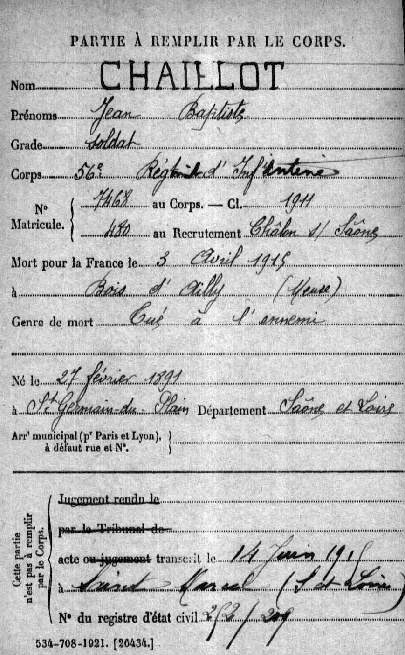 PARTIE À REMPLIR PAR LE CORPS.
Nom CHAILLOT
Prénoms Jean Baptiste
Grade soldat
Corps 56e Régiment d'Infanterie
N° Matricule. { 7468 au Corps. — Cl. 1911
480 au Recrutement Châlon s/ Saône
Mort pour la France le 3 Avril 1915
à Bois d'Ailly (Meuse)
Genre de mort Tué à l'ennemi
Né le 27 février 1891
à St Germain du Plain Département Saône et Loire
Arrt municipal (pr Paris et Lyon), à défaut rue et N°. }
Cette partie n'est pas à remplir par le Corps.
Jugement rendu le
par le Tribunal de
acte ou jugement transcrit le 14 Juin 1915
à Saint Marcel (S et Loire)
N° du registre d'état civil
534-708-1921. [26434.]